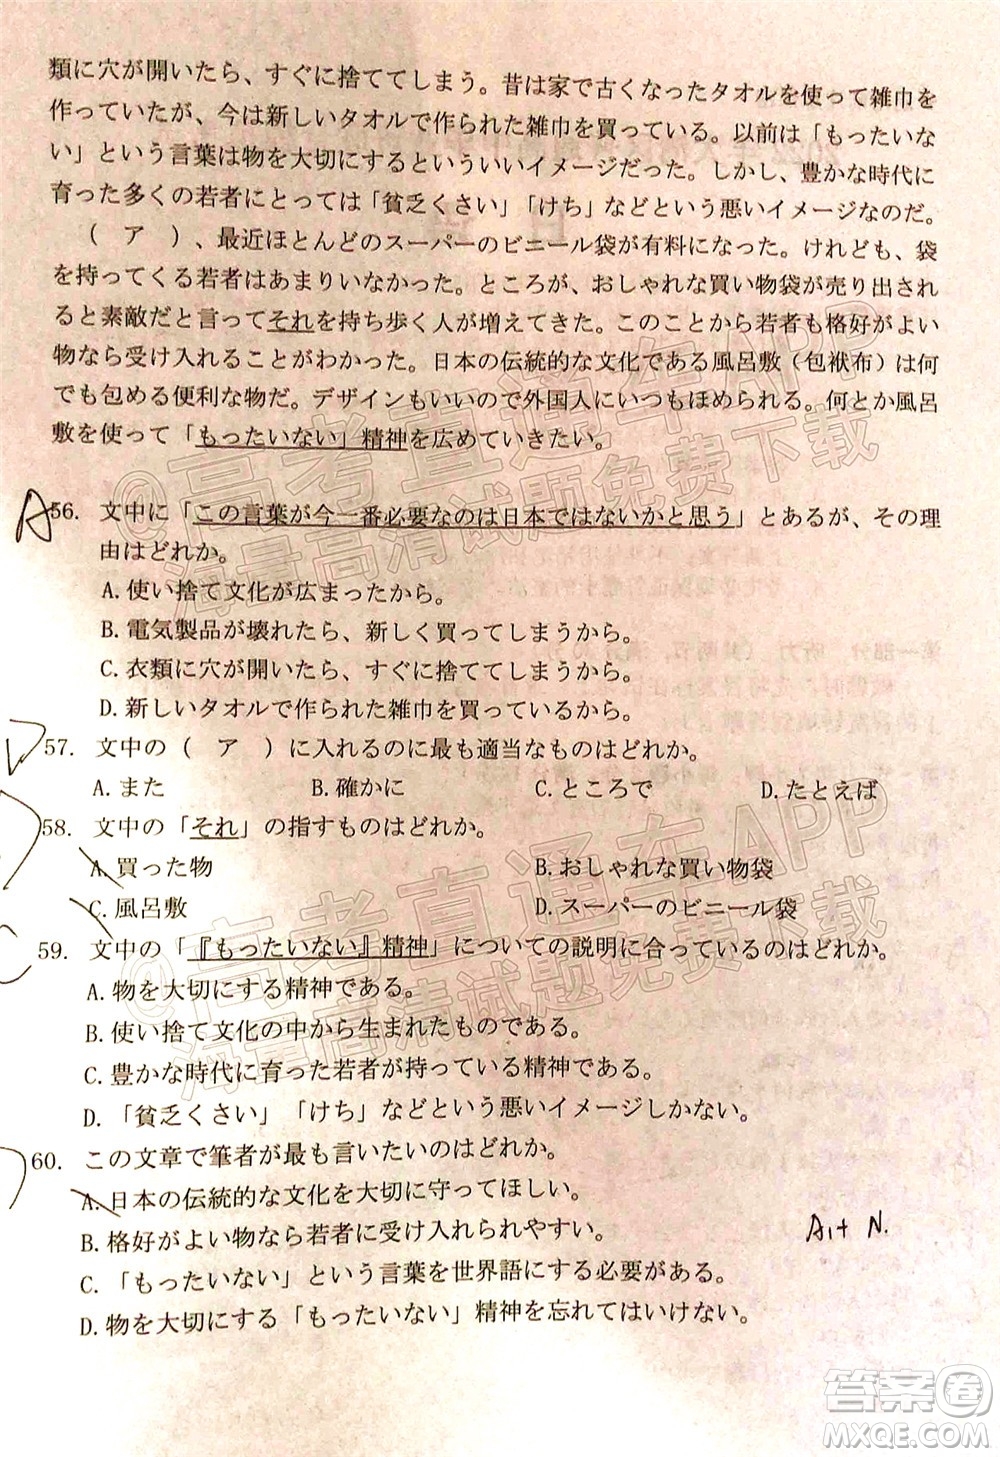 類に穴が開いたら、すぐに捨ててしまう。昔は家で古くなったタオルを使って雑巾を
作っていたが、今は新しいタオルで作られた雑巾を買っている。以前は「もったいな
い」という言葉は物を大切にするといういいイメージだった。しかし、豊かな時代に
育った多くの若者にとっては「貧乏くさい」「けち」などという悪いイメージなのだ。
（　ア　）、最近ほとんどのスーパーのビニール袋が有料になった。けれども、袋
を持ってくる若者はあまりいなかった。ところが、おしゃれな買い物袋が売り出され
ると素敵だと言ってそれを持ち歩く人が増えてきた。このことから若者も格好がよい
物なら受け入れることがわかった。日本の伝統的な文化である風呂敷（包袱布）は何
でも包める便利な物だ。デザインもいいので外国人にいつもほめられる。何とか風呂
敷を使って「もったいない」精神を広めていきたい。
A
56. 文中に「この言葉が今一番必要なのは日本ではないかと思う」とあるが、その理
由はどれか。
A. 使い捨て文化が広まったから。
B. 電気製品が壊れたら、新しく買ってしまうから。
C. 衣類に穴が開いたら、すぐに捨ててしまうから。
D. 新しいタオルで作られた雑巾を買っているから。
D
57. 文中の（　ア　）に入れるのに最も適当なものはどれか。
A. また B. 確かに C. ところで D. たとえば
58. 文中の「それ」の指すものはどれか。
A. 買った物 B. おしゃれな買い物袋
C. 風呂敷 D. スーパーのビニール袋
59. 文中の「『もったいない』精神」についての説明に合っているのはどれか。
A. 物を大切にする精神である。
B. 使い捨て文化の中から生まれたものである。
C. 豊かな時代に育った若者が持っている精神である。
D. 「貧乏くさい」「けち」などという悪いイメージしかない。
60. この文章で筆者が最も言いたいのはどれか。
A. 日本の伝統的な文化を大切に守ってほしい。
B. 格好がよい物なら若者に受け入れられやすい。
C. 「もったいない」という言葉を世界語にする必要がある。
D. 物を大切にする「もったいない」精神を忘れてはいけない。
@高考直通车APP
海量高清试题免费下载
@高考直通车APP
海量高清试题免费下载
答案圈
MXQE.COM